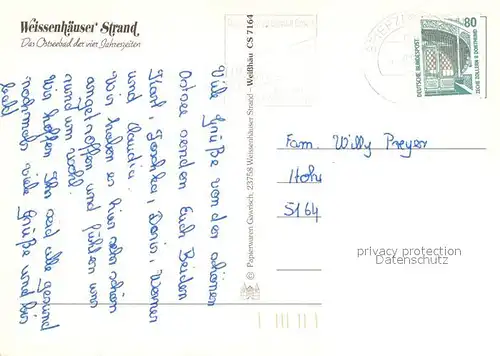 Weissenhäuser Strand
Das Ostseebad der vier Jahreszeiten
Viele Grüße von der schönen
Ostsee senden Euch Beiden
Karl, Doris, Werner
und Claudia.
Wir haben es hier sehr schön
angetroffen und fühlen uns
rund um wohl.
Wir hoffen Ihr seid alle gesund
nochmals viele Grüße und bis
bald
© Papierwaren Gawrisch, 23758 Weissenhäuser Strand - Weißhäu CS 7164
DEUTSCHE BUNDESPOST
80
ZECHE ZOLLERN II DORTMUND
Fam. Willy Preyer
5164
privacy protection
Datenschutz